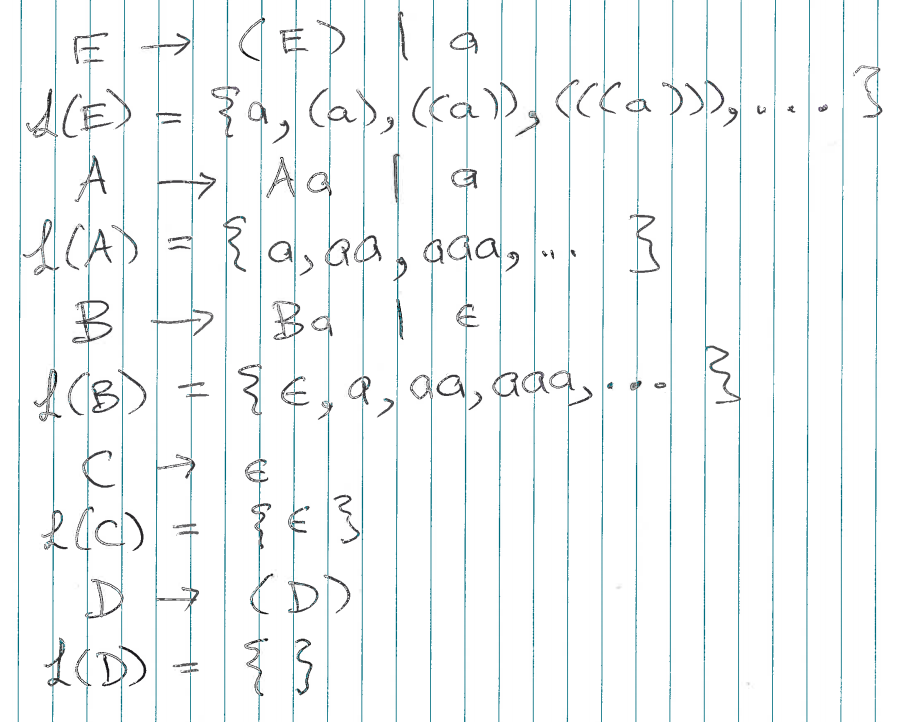 E → (E) | a
ℒ(E) = {a, (a), ((a)), (((a))), .... }
A → Aa | a
ℒ(A) = { a, aa, aaa, ... }
B → Ba | ε
ℒ(B) = { ε, a, aa, aaa, ... }
C → ε
ℒ(C) = { ε }
D → (D)
ℒ(D) = { }